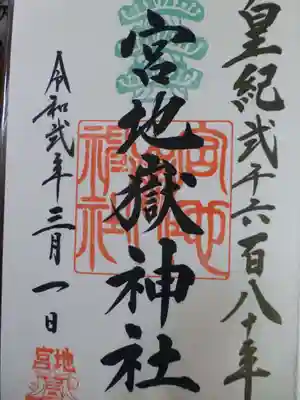 皇紀弐千六百八十年
宮地嶽神社
令和弐年三月一日
宮地嶽神社
宮地嶽